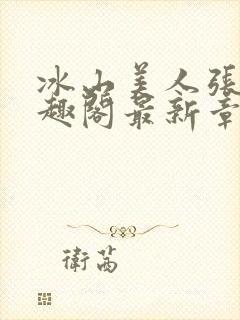 冰山美人張
趣閣最新章
衛茜